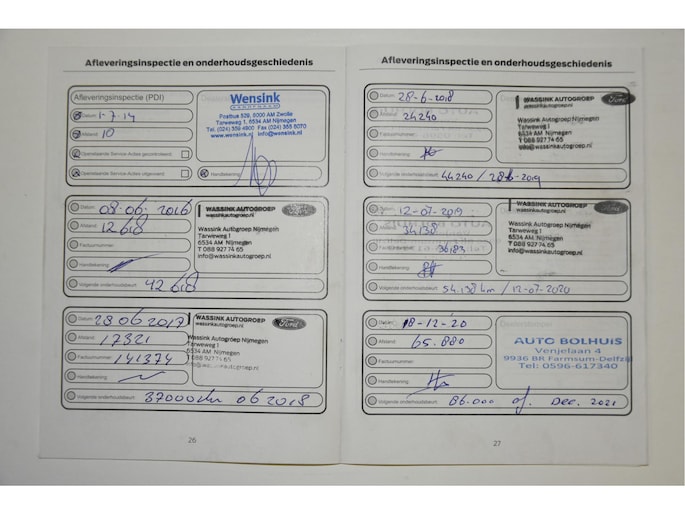 Afleveringsinspectie en onderhoudsgeschiedenis
Afleveringsinspectie (PDI)
Datum: 1-7-14
Afstand: 10
Openstaande Service Acties gecontroleerd:
Openstaande Service Acties uitgevoerd:
Handtekening:
Wensink
Postbus 529, 8000 AM Zwolle
Tarweweg 1, 6534 AM Nijmegen
www.wensink.nl
Datum: 08-06-2016
Afstand: 12618
Factuurnummer:
Handtekening:
Volgende onderhoudsbeurt: 42618
WASSINK AUTOGROEP
wassinkautogroep.nl
Ford
Wassink Autogroep Nijmegen
Tarweweg 1
6534 AM Nijmegen
T 088 927 74 65
info@wassinkautogroep.nl
Datum: 28 06 2017
Afstand: 17321
Factuurnummer: 141374
Handtekening:
Volgende onderhoudsbeurt: 37000 km 06 2018
WASSINK AUTOGROEP
wassinkautogroep.nl
Ford
Wassink Autogroep Nijmegen
6534 AM Nijmegen
26
Afleveringsinspectie en onderhoudsgeschiedenis
Datum: 28-6-2018
Afstand: 24240
Factuurnummer:
Handtekening:
Volgende onderhoudsbeurt: 44240 / 28-6-2019
WASSINK AUTOGROEP
wassinkautogroep.nl
Ford
Wassink Autogroep Nijmegen
Tarweweg 1
6534 AM Nijmegen
T 088 927 74 65
info@wassinkautogroep.nl
Datum: 12-07-2019
Afstand: 34138
Handtekening:
Volgende onderhoudsbeurt: 54.138 km / 12-07-2020
WASSINK AUTOGROEP
wassinkautogroep.nl
Ford
Wassink Autogroep Nijmegen
Tarweweg 1
6534 AM Nijmegen
T 088 927 74 65
info@wassinkautogroep.nl
Datum: 18-12-20
Afstand: 65.880
Factuurnummer:
Handtekening:
Volgende onderhoudsbeurt: 86.000 of Dec. 2021
AUTO BOLHUIS
Venjelaan 4
9936 BR Farmsum-Delfzijl
Tel: 0596-617340
27